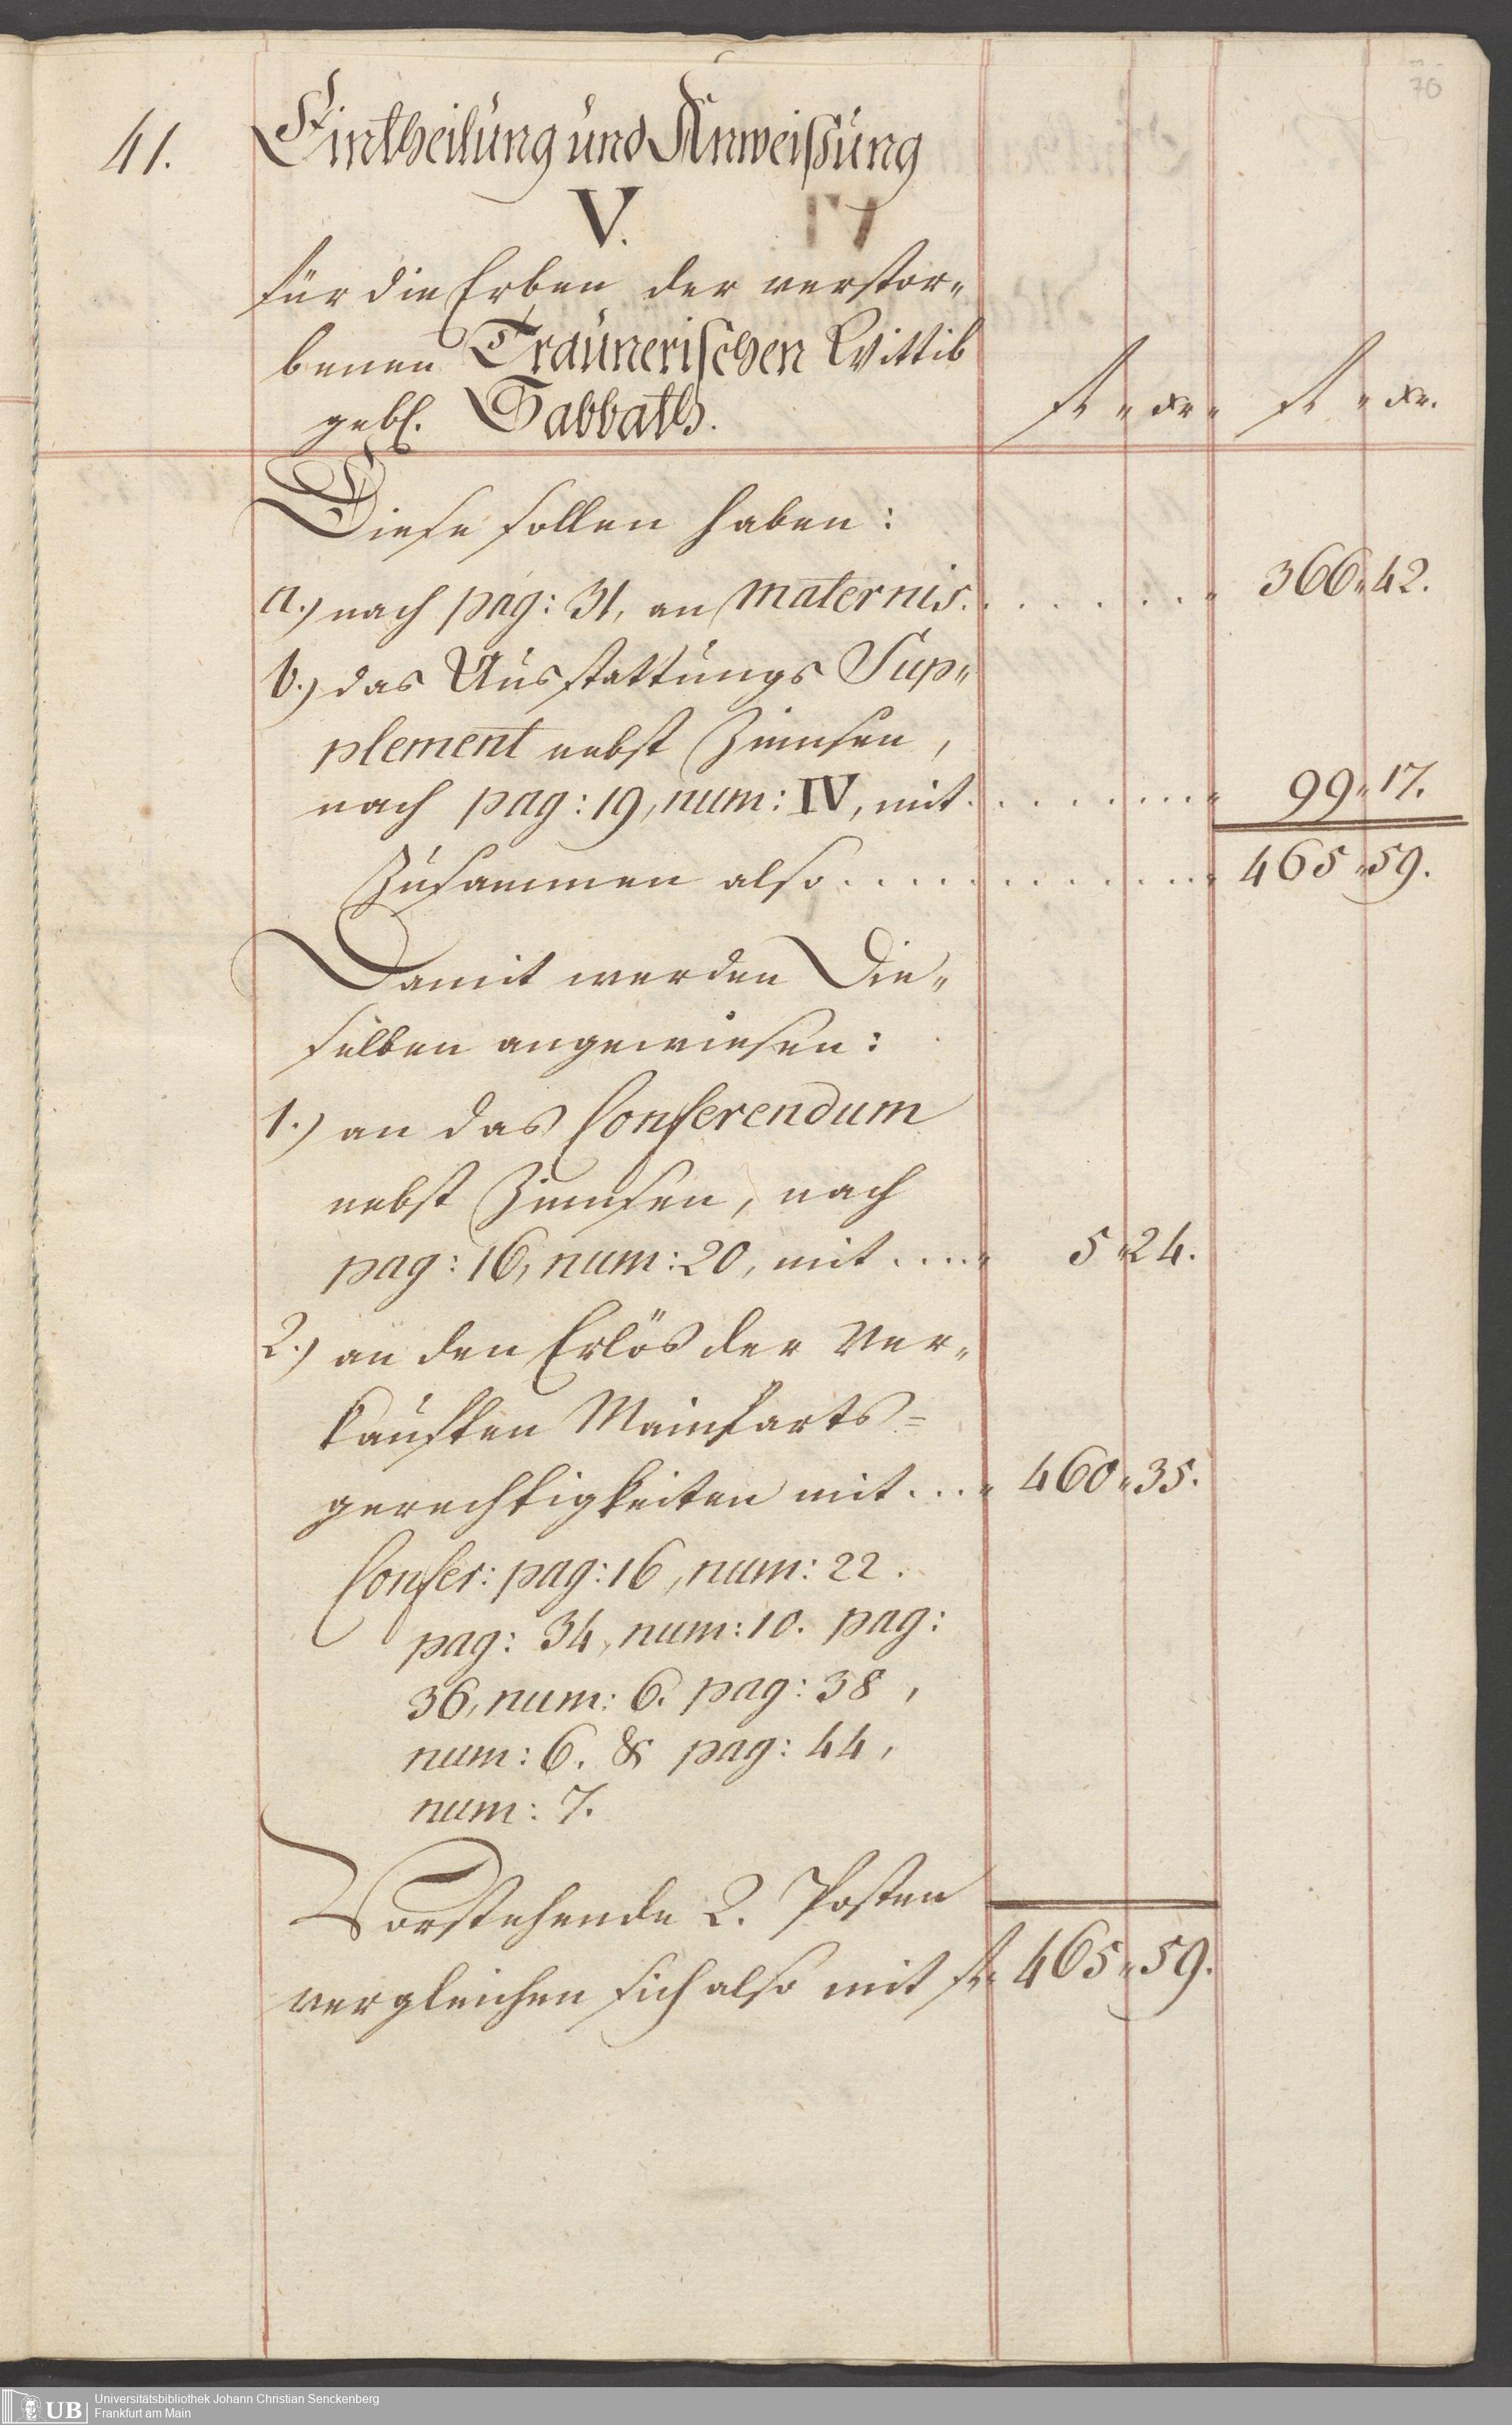 70
41.
Eintheilung und Anweißung
V.
für die Erben der verstor„
benen Traunerischen Wittib
gebl. Sabbath.
fl „ xr „ fl „ xr.
Diese sollen haben:
a.) nach pag: 31, an Maternis. . . . . . . . „ 366„ 42.
b.) das Ausstattungs Sup„
plement nebst Zinnsen,
nach pag: 19, num: IV, mit . . . . . . . . „ 99„ 17.
Zusammen also . . . . . . . . . . . . „ 465 „ 59.
Damit werden Die„
selben angewiesen:
1.) an das Conferendum
nebst Zinnsen, nach
pag: 16, num: 20, mit . . . . „ 5 „ 24.
2.) an den Erlös der Ver„
kauften Mainfarts=
gerechtigkeiten mit . . . „ 460 „ 35.
Confer: pag: 16, num: 22.
pag: 34, num: 10. pag:
36, num: 6. pag: 38,
num: 6. & pag: 44,
num: 7.
Vorstehende 2. Posten
vergleichen sich also mit fl 465 „ 59.
UB
Universitätsbibliothek Johann Christian Senckenberg
Frankfurt am Main